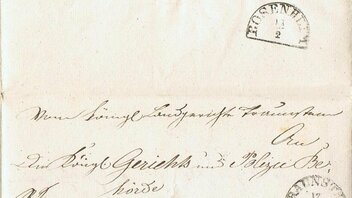 ROSENHEIM
13
2
Vom königl Landgerichte Traunstein
An
Die Königl Gerichts und Polizei Be-
hörde
TRAUNST
12